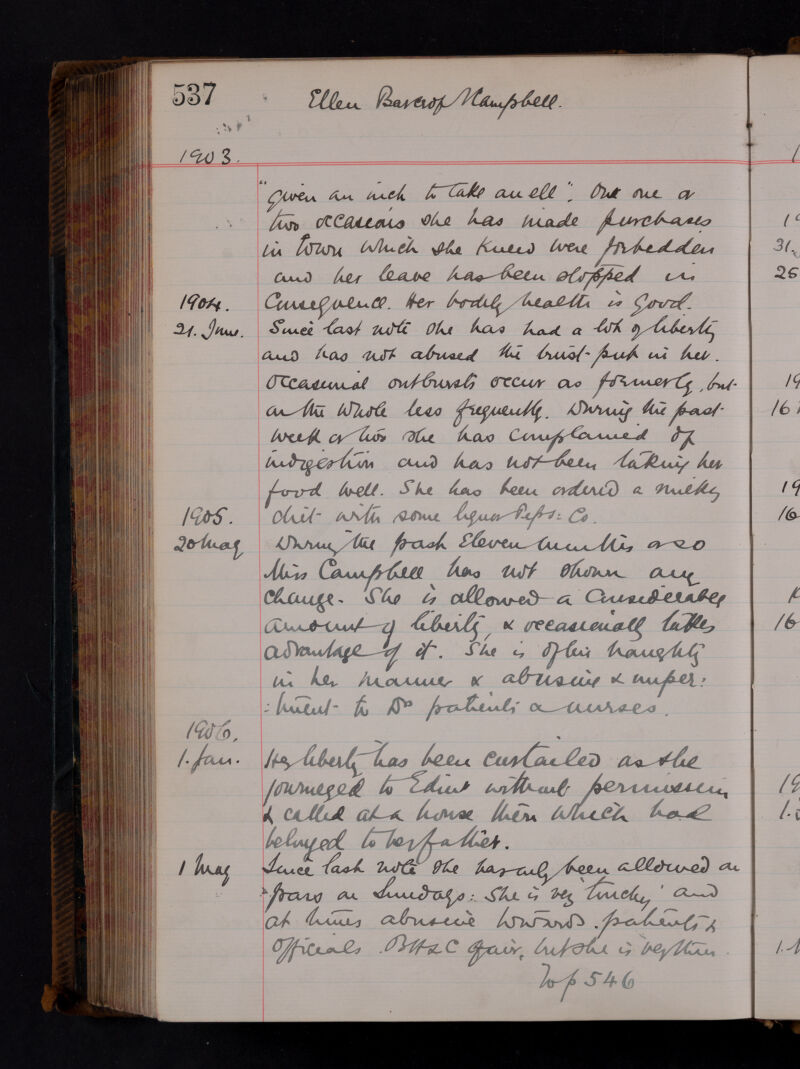 537
Ellen Barcrof Campbell.
1903.
"given an inch to take an ell". On one or
two occasions she has made purchases
in town which she knew were forbidden
and her leave has been stopped in
1904. Consequence. Her bodily health is good.
21. June. Since last note she has had a lot of liberty
and has not abused the trust put in her.
Occasional outbursts occur as formerly, but
on the whole less frequently. During the past
week or two she has complained of
indigestion and has not been taking her
food well. She has been ordered a milky
1905. diet with some liquor Peps: Co.
20 May During the past Eleven months or so
Miss Campbell has not shown any
change. She is allowed a considerable
amount of liberty, & occasionally takes
advantage of it. She is often haughty
in her manner & abusive & imper:
:tinent to Drs patients & nurses.
1906.
1. Jan. Her liberty has been curtailed as she
journeyed to Edinr without permission
& called at a house there which had
belonged to her father.
1 May Since last note she has only been allowed on
pass on Sundays: She is very 'touchy' and
at times abusive towards patients &
Officials. BH & C fair, but she is very thin.
To p 546